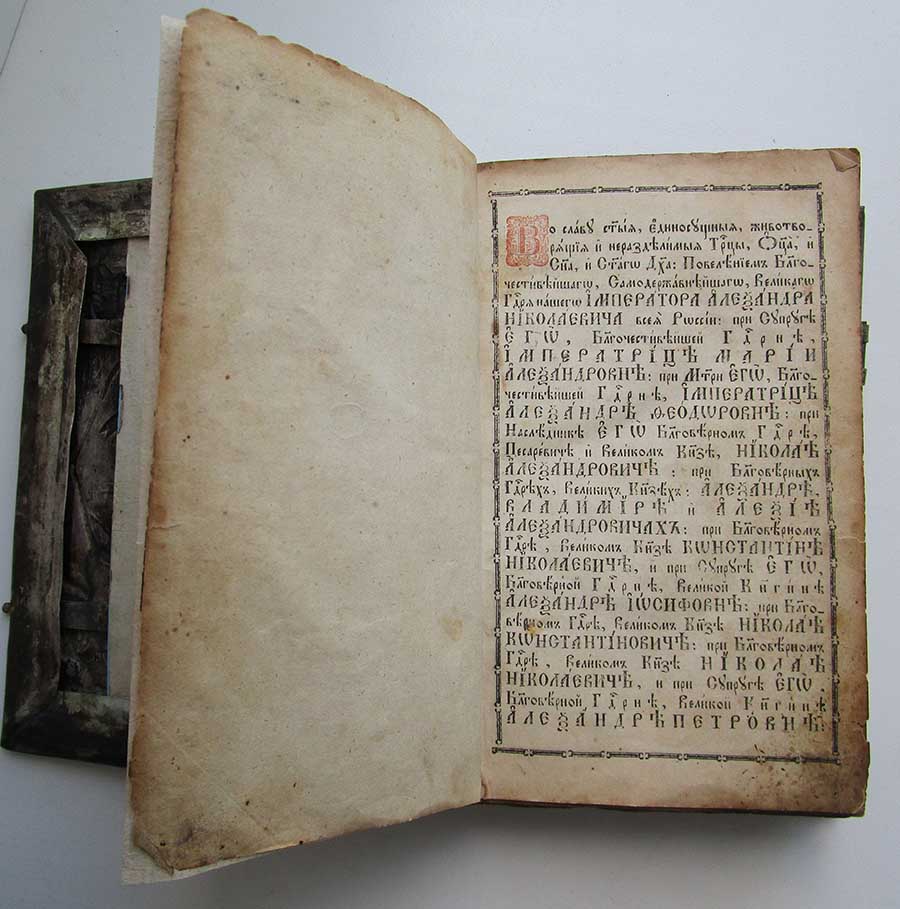 Во сла́вꙋ ст҃ы́ѧ, є҆диносꙋ́щныѧ, животво-
рѧ́щїѧ и҆ нераздѣ́лимыѧ Трⷪ҇цы, Ѻ҆ц҃а̀, и҆
Сн҃а, и҆ Ст҃а́гѡ Дх҃а: Повелѣ́нїемъ Бл҃го-
чести́вѣйшагѡ, Самодержа́внѣйшагѡ, Вели́кагѡ
Гдⷭ҇рѧ на́шегѡ І҆МПЕРАТОРА А҆ЛЕѮА́НДРА
НІКОЛА́ЕВИЧА всеѧ̀ Рѡссі́и: при Сꙋпрꙋ́гѣ
Є҆ГѠ̀, Бл҃гочести́вѣйшей Гдⷭ҇рнѣ,
І҆МПЕРАТРІ́ЦѢ МАРІ́И
А҆ЛЕѮА́НДРОВНѢ: при Мт҃ри Є҆гѡ̀, Бл҃го-
чести́вѣйшей Гдⷭ҇рнѣ, І҆МПЕРАТРІ́ЦѢ
А҆ЛЕѮА́НДРѢ Ѳ҆ЕО́ДѠРОВНѢ: при
Наслѣ́дникѣ Є҆ГѠ̀ Бл҃говѣ́рномъ Гдⷭ҇рѣ,
Цесаре́вичѣ и҆ Вели́комъ Кн҃зѣ, НІКОЛА́Ѣ
А҆ЛЕѮА́НДРОВИЧѢ: при Бл҃говѣ́рныхъ
Гдⷭ҇рѣхъ, Вели́кихъ Кн҃зѣхъ: А҆ЛЕѮА́НДРѢ,
ВЛАДИ́МІРѢ и҆ А҆ЛЕѮІ́Ѣ
А҆ЛЕѮА́НДРОВИЧАХЪ: при Бл҃говѣ́рномъ
Гдⷭ҇рѣ, Вели́комъ Кн҃зѣ КѠНСТАНТІ́НѢ
НІКОЛА́ЕВИЧѢ, и҆ при Сꙋпрꙋ́гѣ Є҆ГѠ̀,
Бл҃говѣ́рной Гдⷭ҇рнѣ, Вели́кой Кн҃ги́нѣ
А҆ЛЕѮА́НДРѢ І҆Ѡ́СИФОВНѢ: при Бл҃го-
вѣ́рномъ Гдⷭ҇рѣ, Вели́комъ Кн҃зѣ НІКОЛА́Ѣ
КѠНСТАНТІ́НОВИЧѢ: при Бл҃говѣ́рномъ
Гдⷭ҇рѣ, Вели́комъ Кн҃зѣ НІКОЛА́Ѣ
НІКОЛА́ЕВИЧѢ, и҆ при Сꙋпрꙋ́гѣ Є҆ГѠ̀,
Бл҃говѣ́рной Гдⷭ҇рнѣ, Вели́кой Кн҃ги́нѣ
А҆ЛЕѮА́НДРѢ ПЕТРО́ВНѢ: